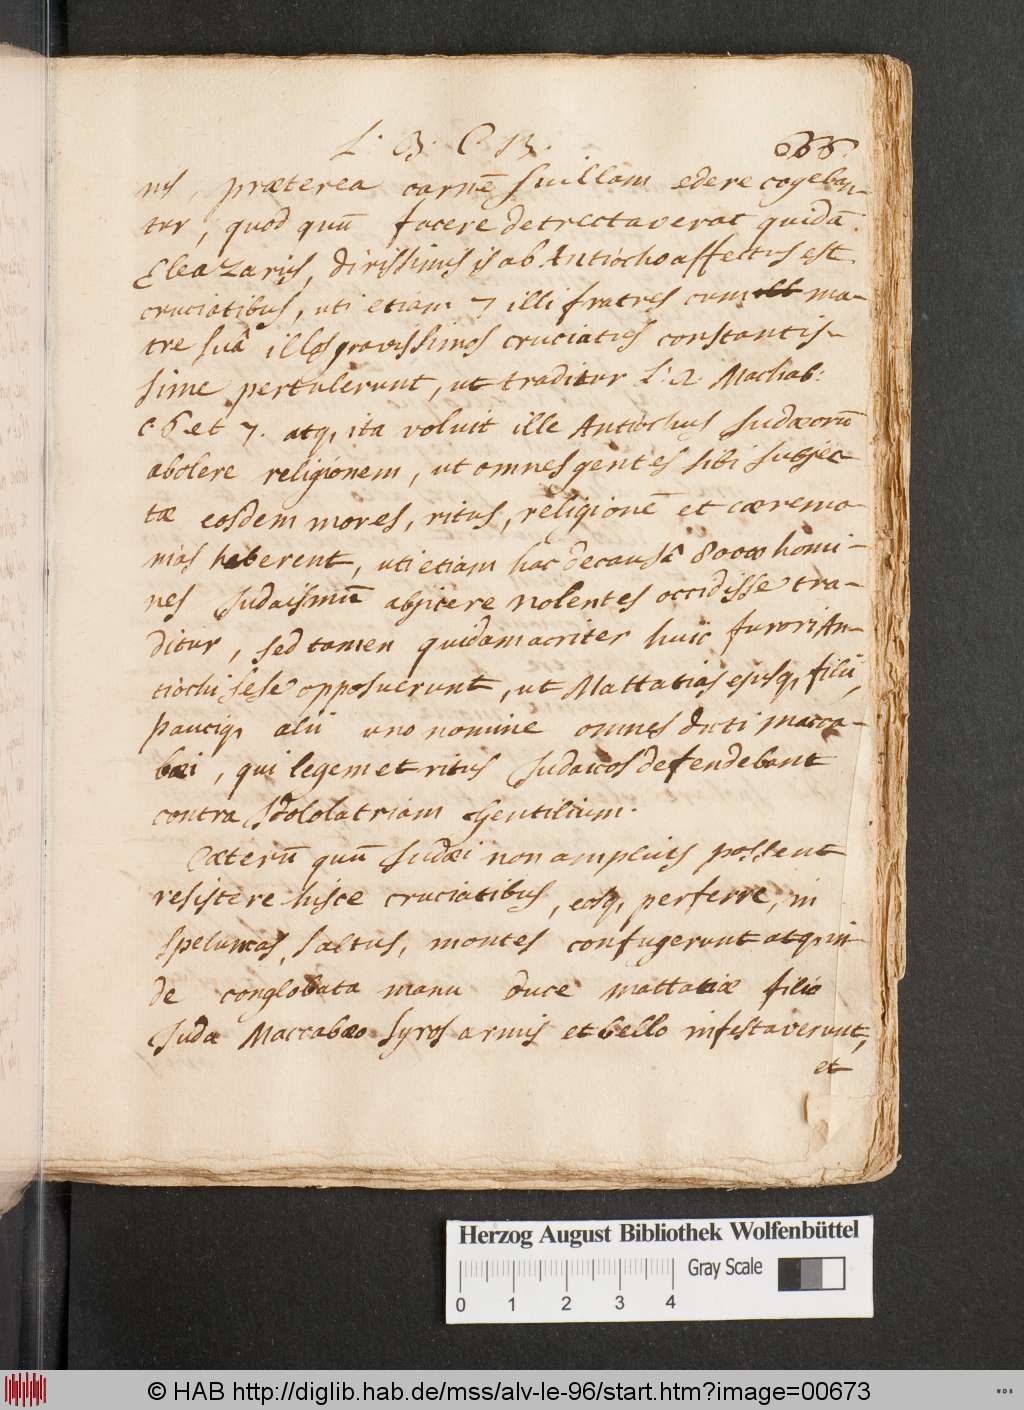 L. 3. C. 13.
666.
nis, præterea carnē suillam edere cogeban-
tur, quod quū facere detrectaverat quidā
Eleazarus, dirissimis is ab Antiocho affectus est
cruciatibus, uti etiam 7 illi fratres cum ma-
tre suâ illos gravissimos cruciatus constantis-
sime pertulerunt, ut traditur L. 2. Machab:
c. 6. et 7. atq, ita voluit ille Antiochus Judæorū
abolere religionem, ut omnes gentes sibi subjec-
tæ eosdem mores, ritus, religionē et cæremo-
nias haberent, uti etiam hac de causâ 80000 homi-
nes Judaismū abjicere nolentes occidisse tra-
ditur, sed tamen quidam acriter huic furori An-
tiochi sese opposuerunt, ut Mattatias ejusq, filii,
pauciq, alii uno nomine omnes dicti macca-
bæi, qui legem et ritus Judaicos defendebant
contra Idololatriam Gentilium.
Cæterū quū Judæi non amplius possent
resistere hisce cruciatibus, eosq, perferre, in
speluncas, saltus, montes confugerunt atq, in-
de conglobata manu duce mattatiæ filio
Juda Maccabæo Syros armis et bello infestaverunt,
et
Herzog August Bibliothek Wolfenbüttel
Gray Scale
0 1 2 3 4
© HAB http://diglib.hab.de/mss/alv-le-96/start.htm?image=00673